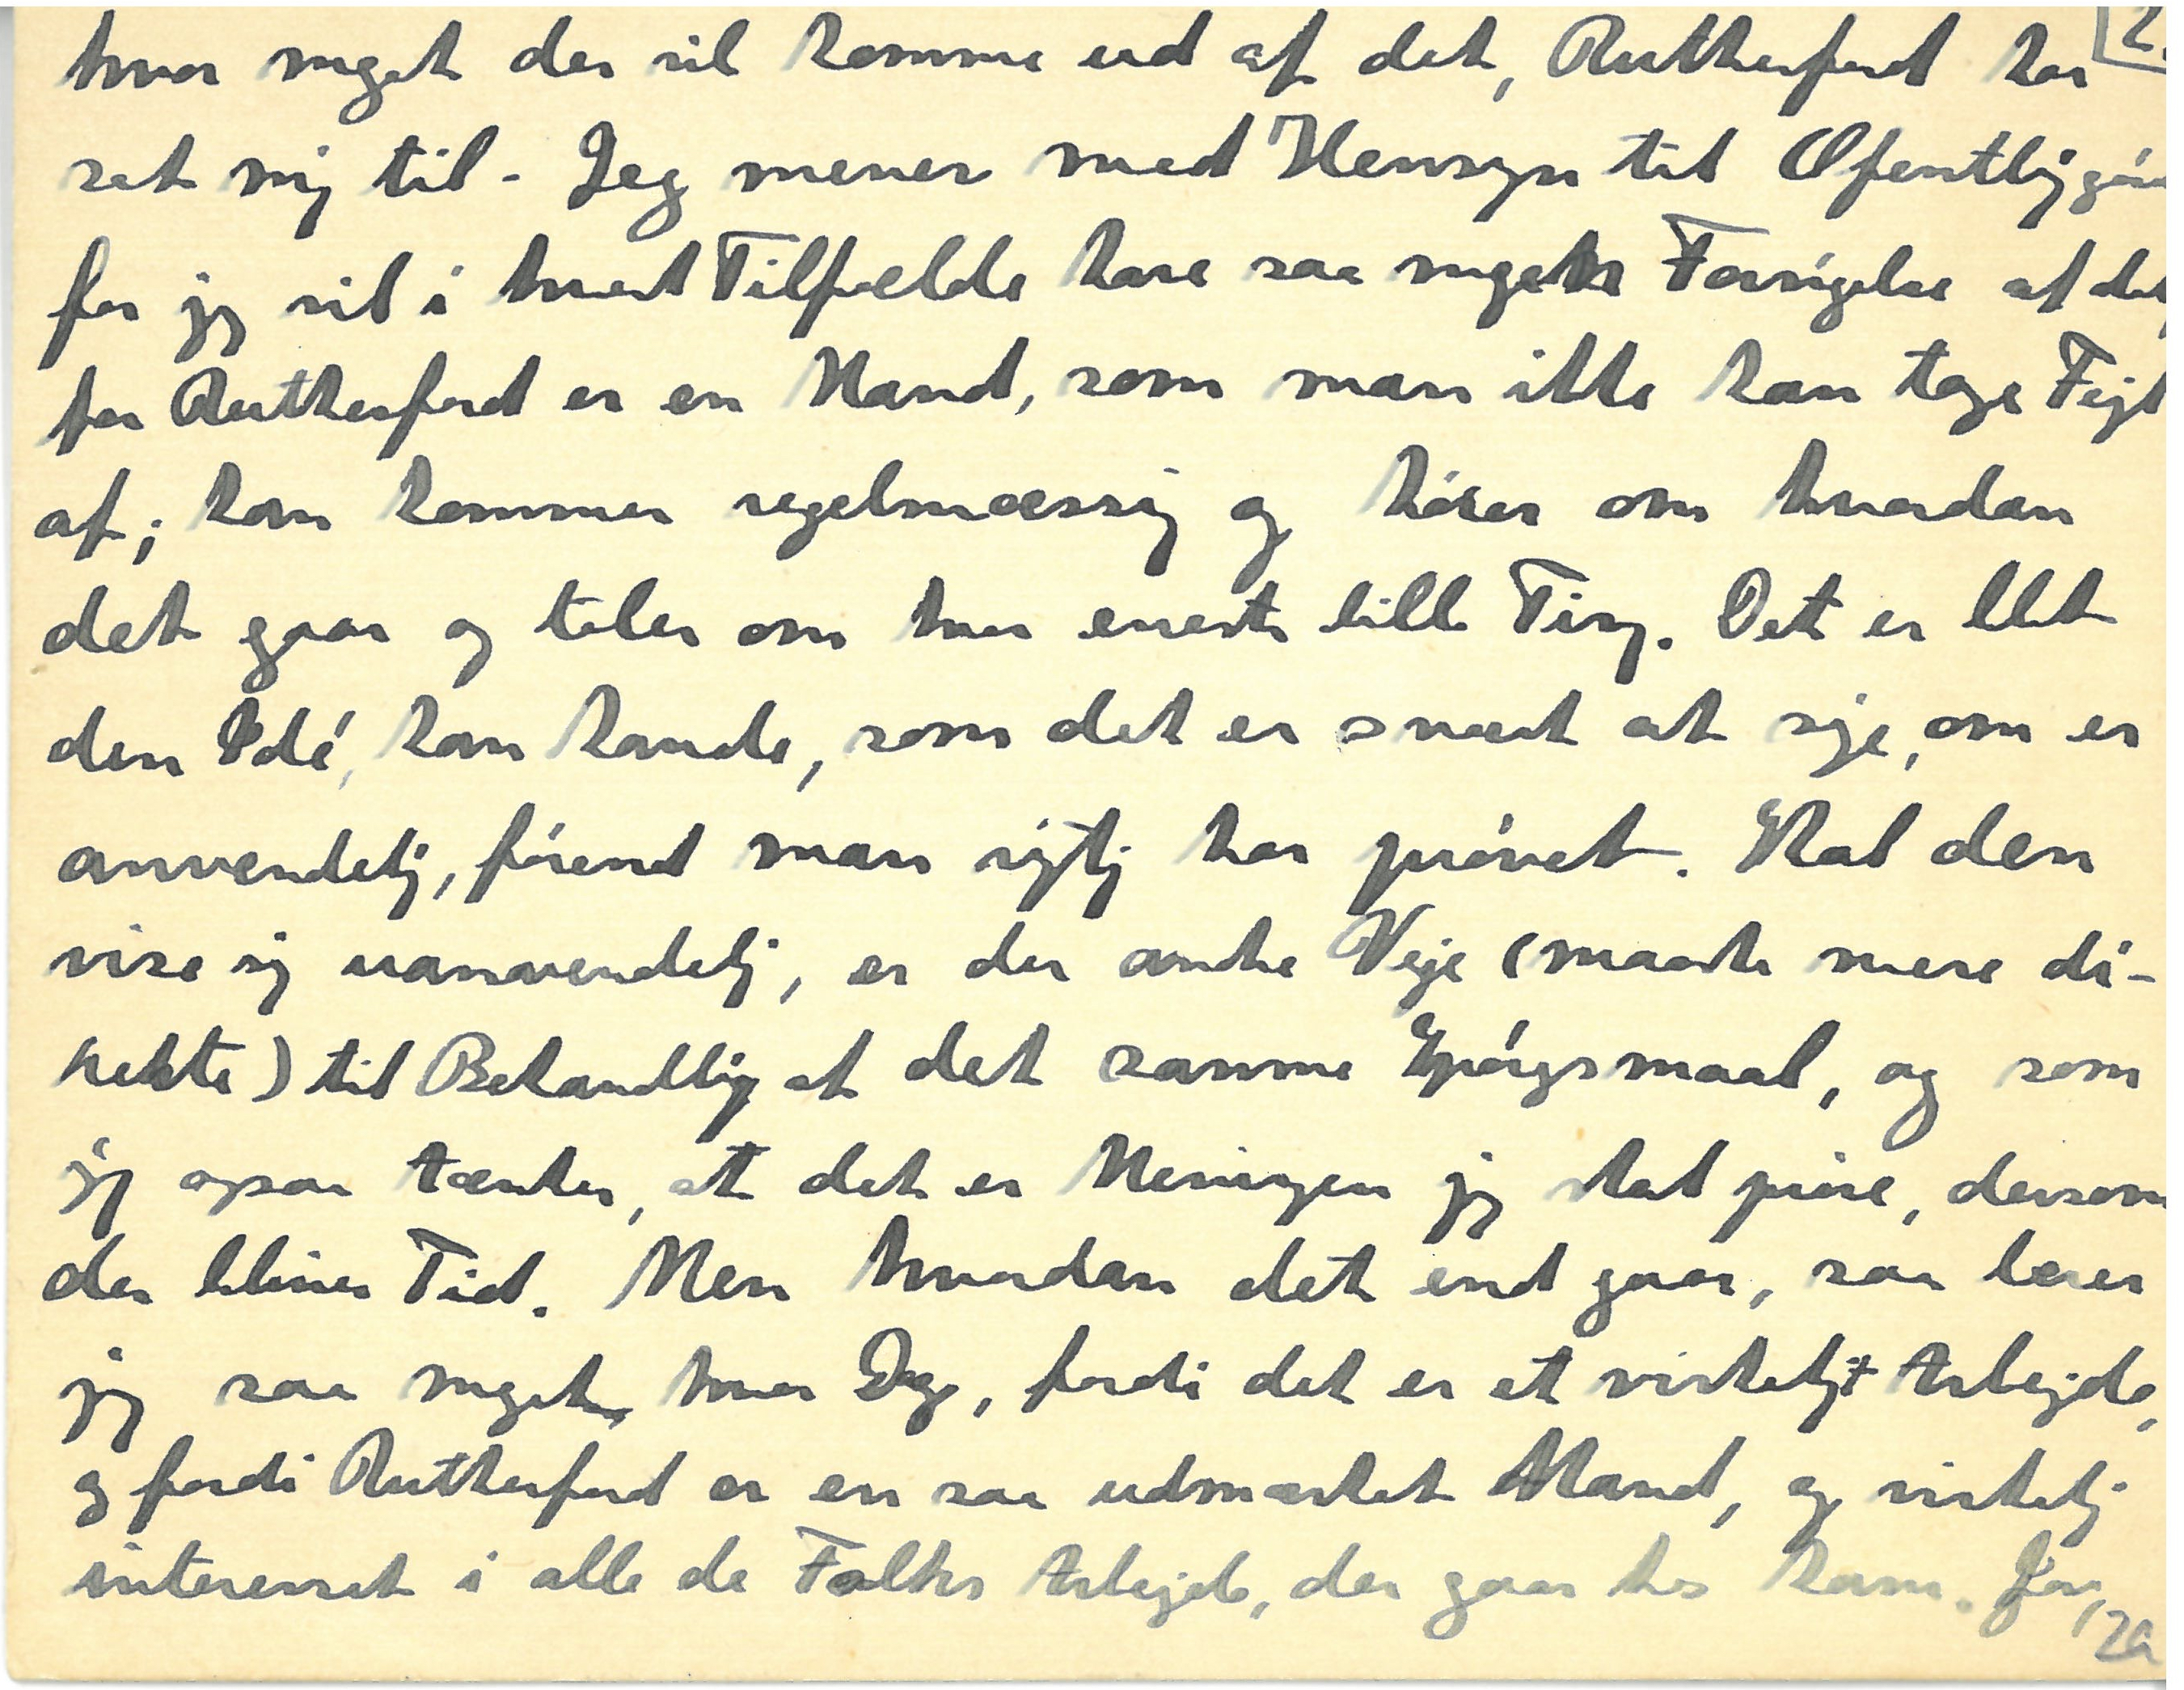 hvor meget der vil komme ud af det, Rutherford har 2.
sat mig til. Jeg mener med Hensyn til Ofentligg
for jeg vil i hvert Tilfælde have saa megen Fornøjelse af det,
for Rutherford er en Mand, som man ikke kan tage Fejl
af; han kommer regelmæssig og hører om hvordan
det gaar og taler om hver eneste lille Ting. Det er blot
den Idé, han havde, som det er svært at sige, om er
anvendelig, førend man rigtig har prøvet. Skal den
vise sig uanvendelig, er der andre Veje (maaske mere di-
rekte) til Behandling af det samme Spørgsmaal, og som
jeg ogsaa tænker, at det er Meningen jeg skal prøve, dersom
der bliver Tid. Men hvordan det end gaar, saa lærer
jeg saa meget hver Dag, fordi det er et virkeligt Arbejde,
og fordi Rutherford er en saa udmærket Mand, og virkelig
interesset i alle de Folks Arbejde, der gaar hos ham. Jeg,
2a